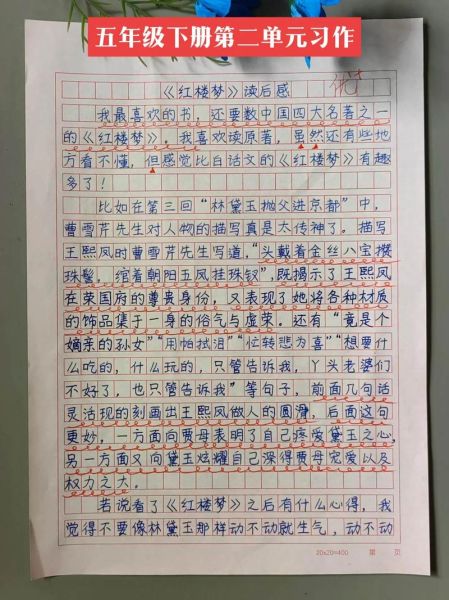 五年级下册第二单元习作
《红楼梦》读后感
优+
我最喜欢的书，还要数中国四大名著之一
的《红楼梦》，我喜欢读原著，虽然还有些地
方看不懂，但感觉比白话文的《红楼梦》有趣
多了！
比如在第三回“林黛玉抛父进京都”中，
曹雪芹先生对人物的描写真是太传神了。描写
王熙凤时曹雪芹先生写道，“头戴着金丝八宝攒
珠髻，绾着朝阳五凤挂珠钗”，既揭示了王熙凤
在荣国府的尊贵身份，又表现了她将各种材质
的饰品集于一身的俗气与虚荣。还有“竟是个
嫡亲的孙女”“用帕拭泪”“忙转悲为喜”“想要什
么吃的，什么玩的，只管告诉我，丫头老婆们
不好了，也只管告诉我”等句子，前面几句话
灵活现的刻画出王熙凤做人的圆滑，后面这句
更妙，一方面向贾母表明了自己疼爱黛玉之心，
另一方面又向黛玉炫耀自己深得贾母宠爱以及
权力之大。
若说看了《红楼梦》之后有什么心得，我
觉得不要像林黛玉那样动不动就生气，动不动
20x20=400 第 页